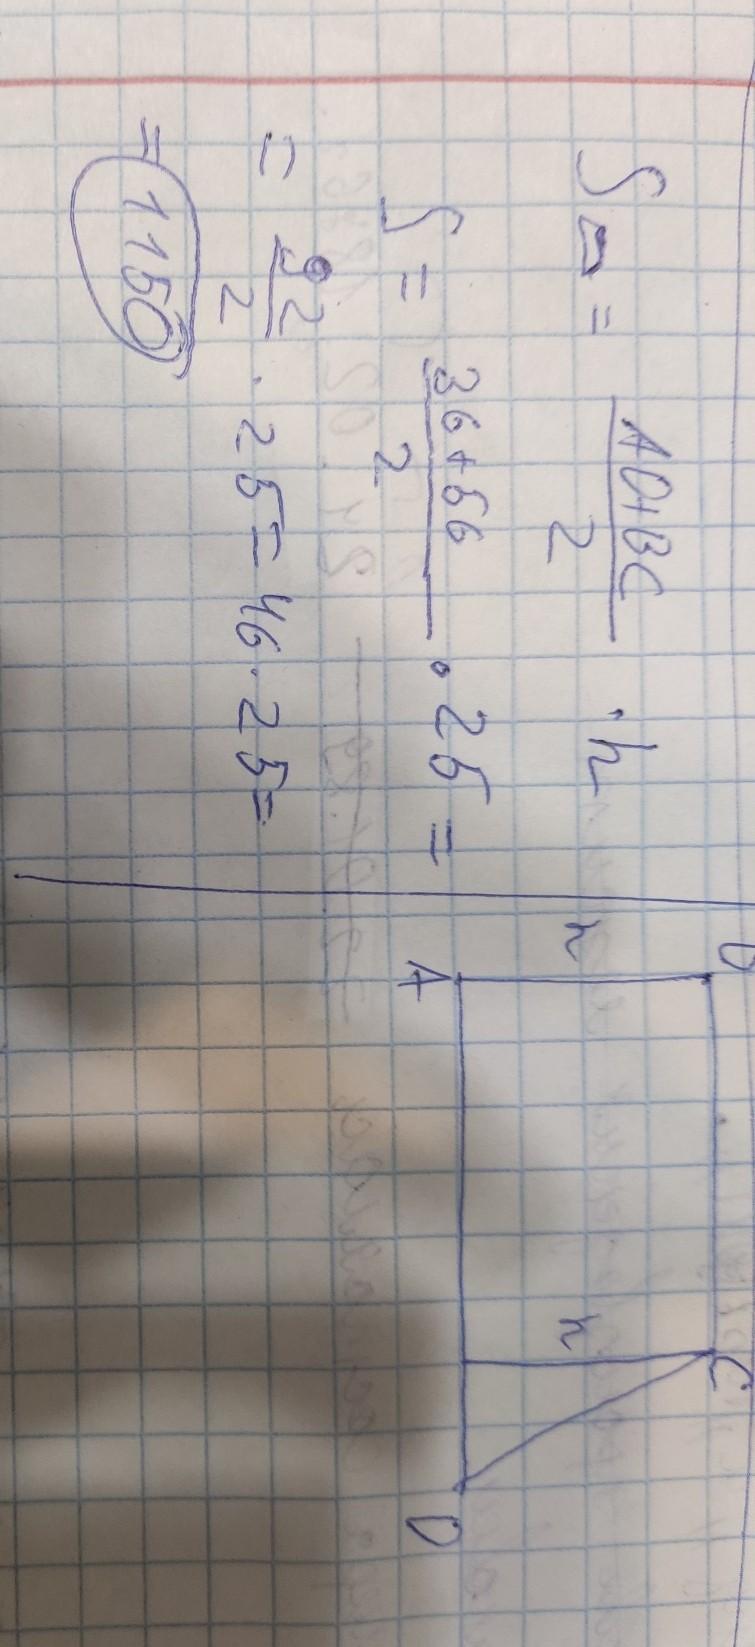 S⏢ = AD+BC / 2 · h
S = 36+56 / 2 · 25 =
= 92 / 2 · 25 = 46 · 25 =
= 1150
h
A
h
C
D